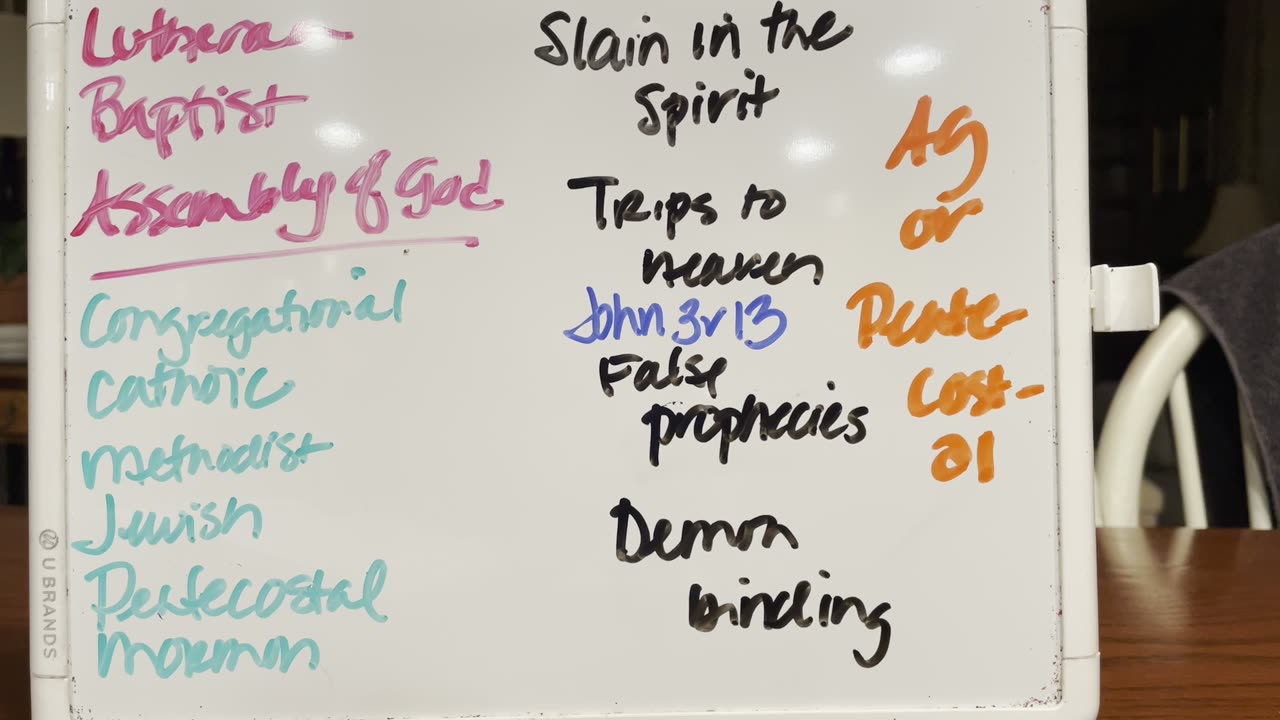 Lutheran
Baptist
Assembly of God
Congregational
Cathoic
Methodist
Jewish
Pentecostal
Mormon
Slain in the
Spirit
Trips to
heaven
John 3v13
False
prophecies
Demon
binding
AG
or
Pente-
Cost-
al
U BRANDS